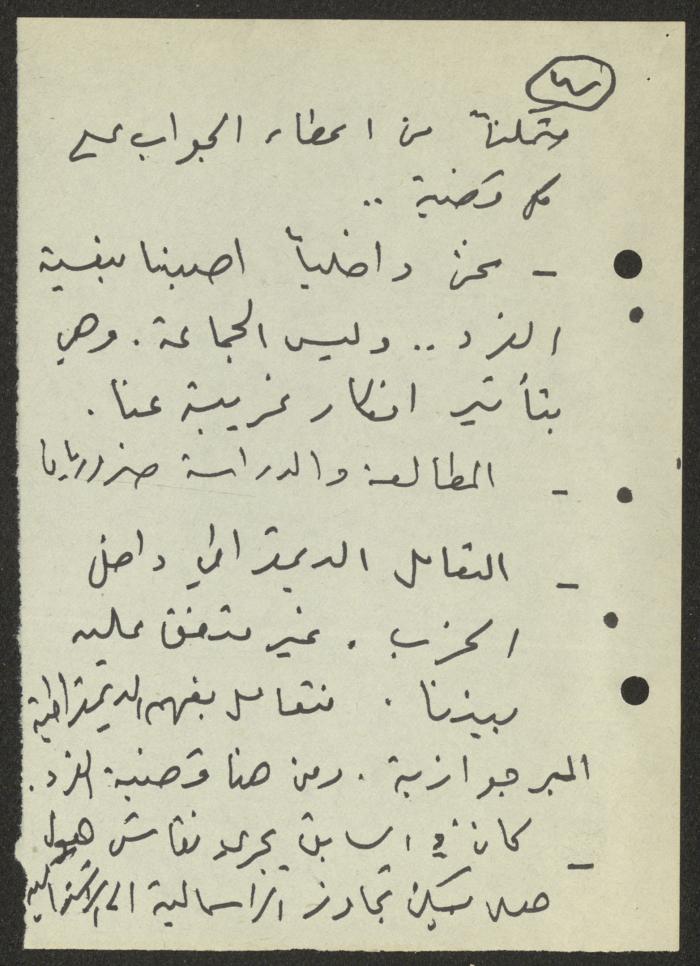 متمكناً من اعطاء الجواب على
كل قضية ..
- نحن داخلياً اصبنا بنفسية
الفرد .. وليس الجماعة . وهي
بتأثير افكار غريبة عنا .
- المطالعة والدراسة
- التعامل الديمقراطي داخل
الحزب . غير متفق عليه
بيننا . نتعامل بفهم الديمقراطية
البرجوازية . ومن هنا قضية الفرد .
- كان في السابق يجري نقاش حول
هل يمكن تجاوز الرأسمالية الى الاشتراكية